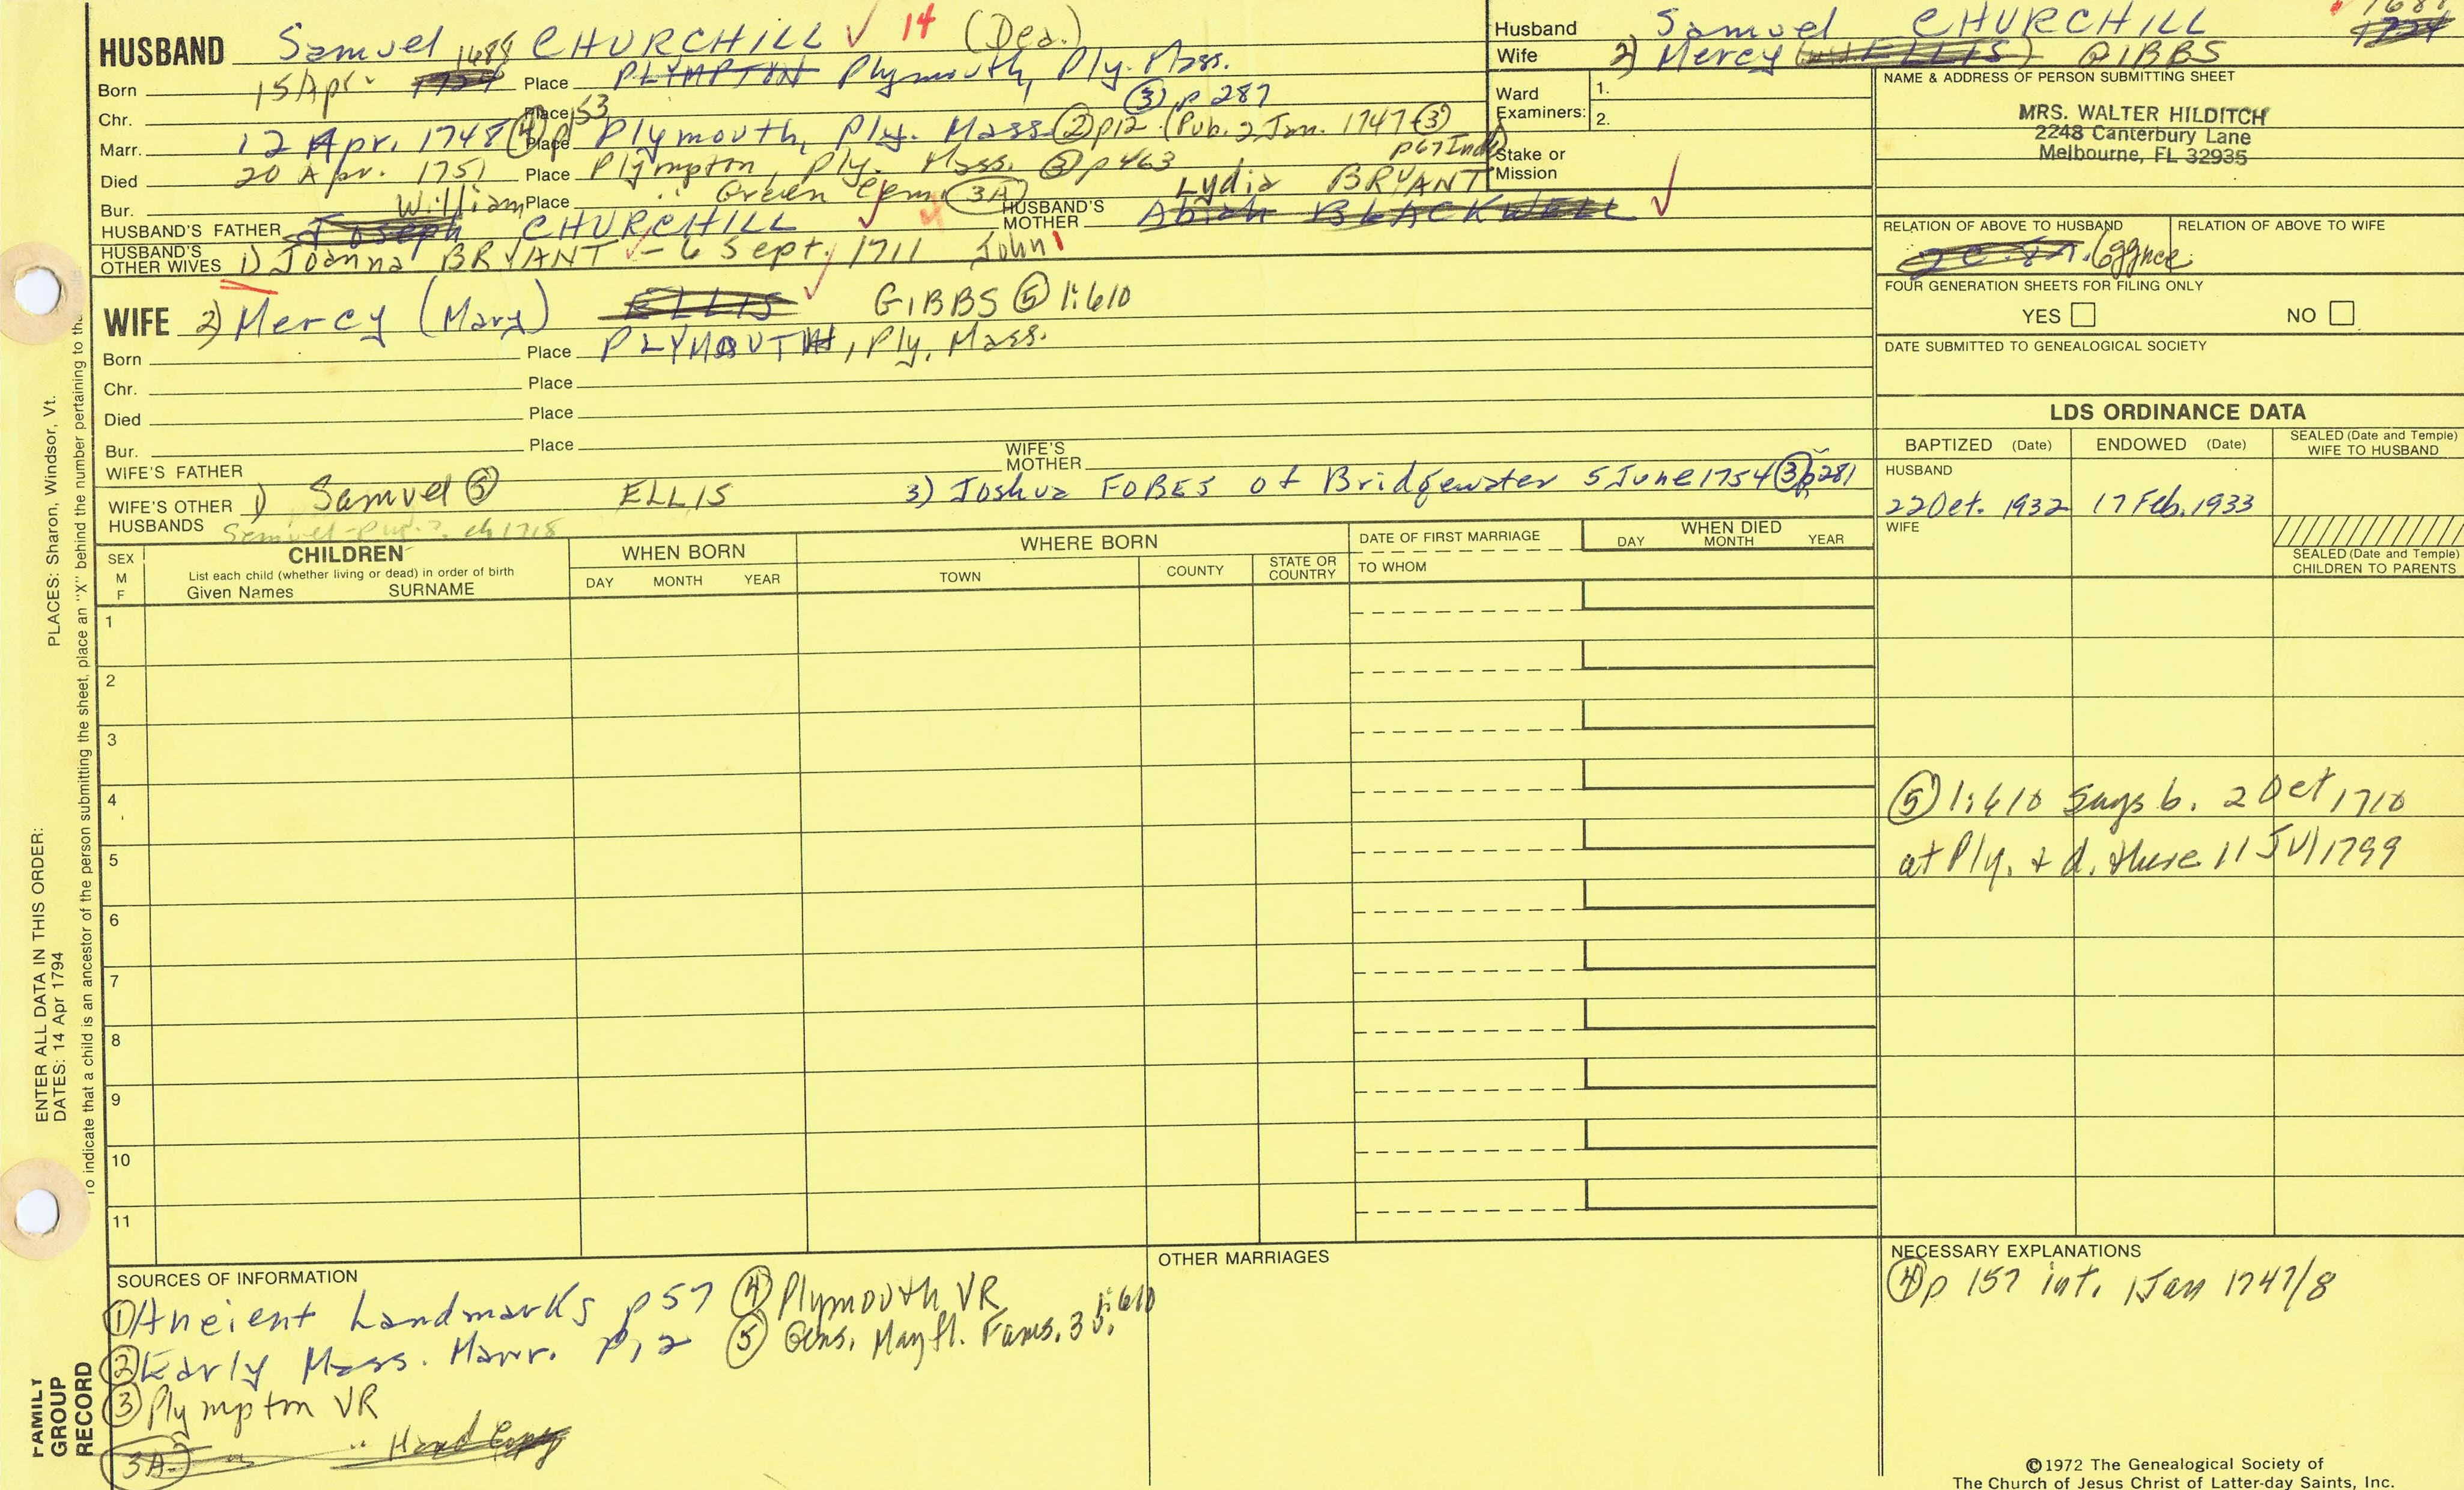 HUSBAND Samuel CHURCHILL ✓ 14 (Dea.)
Born 15 Apr. 1688 1724 Place PLYMPTON Plymouth, Ply. Mass.
Chr. Place 153 ③ p 287
Marr. 12 Apr. 1748 ④ p Place Plymouth, Ply. Mass ② p12 (Pub. 2 Jan. 1747 ③
p67 Ind
Died 20 Apr. 1751 Place Plympton, Ply. Mass. ③ p 463
Bur. Place " Green Cem 3A
HUSBAND'S FATHER William Joseph CHURCHILL HUSBAND'S MOTHER Lydia BRYANT Abiah BLACKWELL ✓
HUSBAND'S OTHER WIVES 1) Joanna BRYANT - 6 Sept. 1711 John
WIFE 2) Mercy (Mary) ELLIS ✓ GIBBS ⑤ 1:610
Born Place PLYMOUTH, Ply. Mass.
Chr. Place
Died Place
Bur. Place
WIFE'S FATHER WIFE'S MOTHER
WIFE'S OTHER HUSBANDS 1) Samuel ⑤ ELLIS 3) Joshua FOBES of Bridgewater 5 June 1754 ③ p281
Husband Samuel CHURCHILL 1688 1724
Wife 2) Mercy ( ELLIS) GIBBS
Ward Examiners: 1.
2.
Stake or Mission
NAME & ADDRESS OF PERSON SUBMITTING SHEET
MRS. WALTER HILDITCH
2248 Canterbury Lane
Melbourne, FL 32935
RELATION OF ABOVE TO HUSBAND RELATION OF ABOVE TO WIFE
FOUR GENERATION SHEETS FOR FILING ONLY
YES NO
DATE SUBMITTED TO GENEALOGICAL SOCIETY
LDS ORDINANCE DATA
BAPTIZED (Date) ENDOWED (Date) SEALED (Date and Temple) WIFE TO HUSBAND
HUSBAND
22 Oct. 1932 17 Feb. 1933
WIFE
SEALED (Date and Temple) CHILDREN TO PARENTS
SEX M F
CHILDREN
List each child (whether living or dead) in order of birth
Given Names SURNAME
WHEN BORN
DAY MONTH YEAR
WHERE BORN
TOWN COUNTY STATE OR COUNTRY
DATE OF FIRST MARRIAGE
TO WHOM
WHEN DIED
DAY MONTH YEAR
1
2
3
4
5
6
7
8
9
10
11
⑤ 1:610 Says b. 2 Oct 1710
at Ply. + d. there 11 Jul 1799
SOURCES OF INFORMATION
① Ancient Landmarks p 57
② Early Mass. Marr. p12
③ Plympton VR
3A " Hand Copy
④ Plymouth VR
⑤ Gens. Mayfl. Fams. 3 v. 1:610
OTHER MARRIAGES
NECESSARY EXPLANATIONS
④ p 157 int. 1 Jan 1747/8
©1972 The Genealogical Society of
The Church of Jesus Christ of Latter-day Saints, Inc.
FAMILY GROUP RECORD
ENTER ALL DATA IN THIS ORDER:
DATES: 14 Apr 1794
PLACES: Sharon, Windsor, Vt.
To indicate that a child is an ancestor of the person submitting the sheet, place an "X" behind the number pertaining to